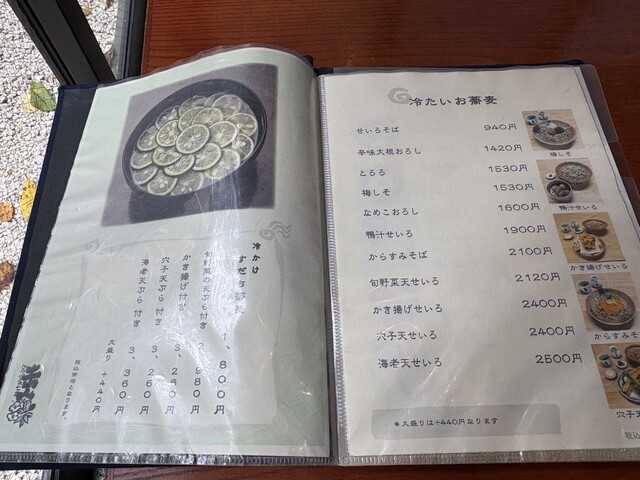 冷かけ
すだち蕎麦 1、800円
旬野菜の天ぷら付き 2、980円
かき揚げ付き 3、260円
穴子天ぷら 付き 3、260円
海老天ぷら 付き 3、360円
大盛り +440円
税込価格となります。
冷たいお蕎麦
せいろそば 940円
辛味大根おろし 1420円
とろろ 1530円
梅しそ 1530円
なめこおろし 1600円
鴨汁せいろ 1900円
からすみそば 2100円
旬野菜天せいろ 2120円
かき揚げせいろ 2400円
穴子天せいろ 2400円
海老天せいろ 2500円
*大盛りは+440円なります
梅しそ
鴨汁せいろ
かき揚げせいろ
からすみそ
穴子天
税込